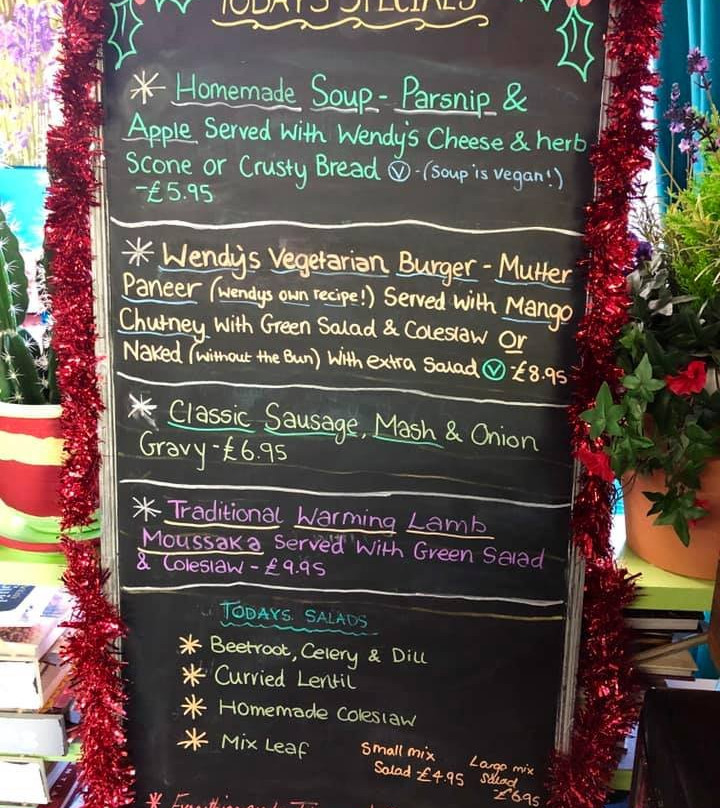 TODAYS SPECIALS
* Homemade Soup - Parsnip &
Apple Served With Wendy's Cheese & herb
Scone or Crusty Bread Ⓥ - (Soup is vegan!)
- £5.95
* Wendy's Vegetarian Burger - Mutter
Paneer (Wendys own recipe!) Served With Mango
Chutney With Green Salad & Coleslaw Or
Naked (without the Bun) With extra Salad Ⓥ - £8.95
* Classic Sausage, Mash & Onion
Gravy - £6.95
* Traditional Warming Lamb
Moussaka Served With Green Salad
& Coleslaw - £9.95
TODAYS SALADS
* Beetroot, Celery & Dill
* Curried Lentil
* Homemade Coleslaw
* Mix Leaf
Small mix
Salad £4.95
Large mix
Salad
- £6.95